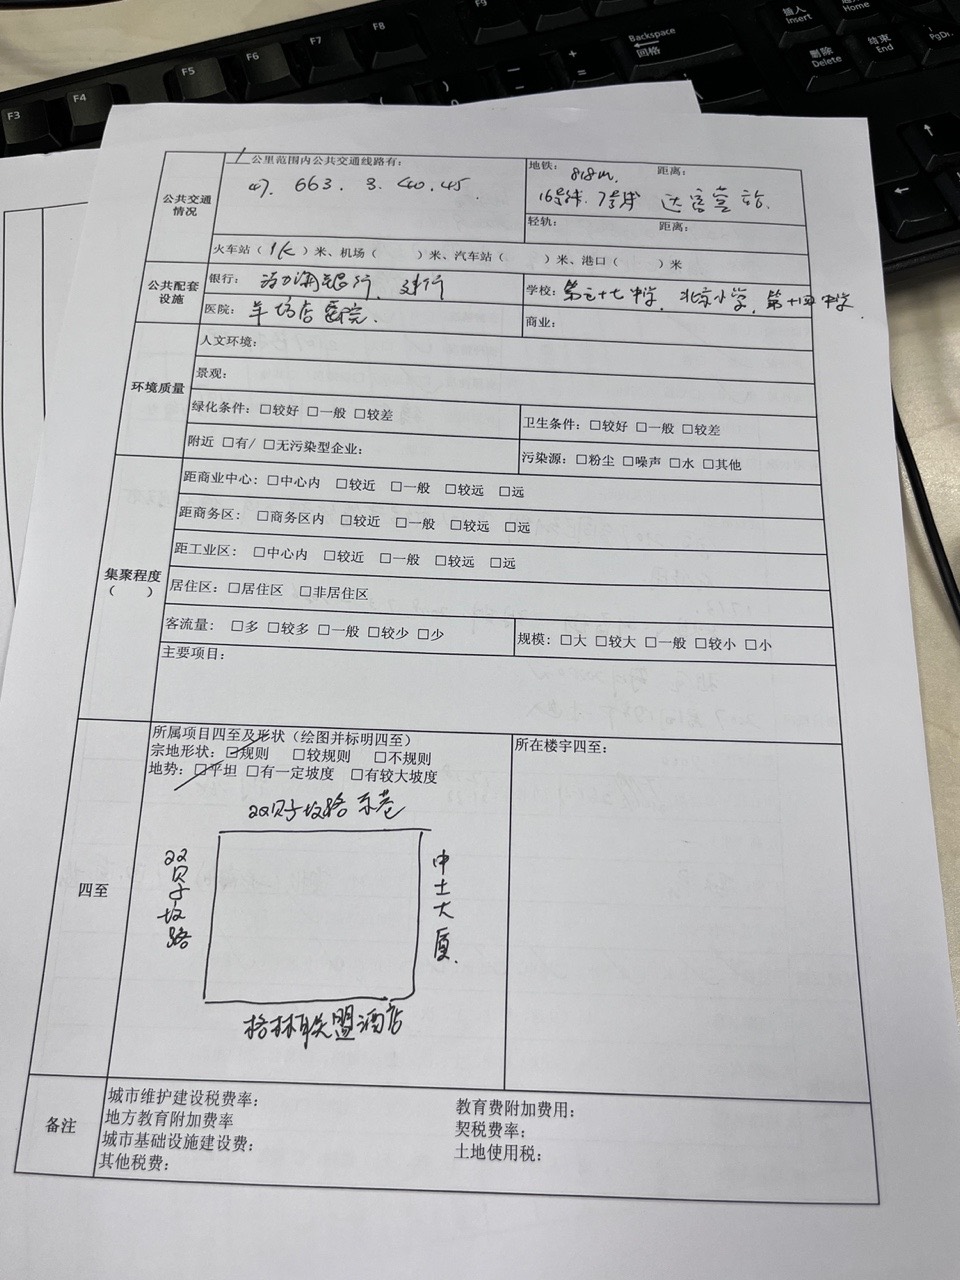 F3 F4 F5 F6 F7 F8
Backspace
回格
插入
Insert
Home
删除
Delete
结束
End
PgDn
公共交通
情况
1公里范围内公共交通线路有:
47. 663. 3. 40. 45.
地铁: 818m. 距离:
16号线. 7号线 达官营站.
轻轨: 距离:
火车站( 1K )米、机场( )米、汽车站( )米、港口( )米
公共配套
设施
银行: 渤海银行、建行
学校: 第五十七中学, 北京小学, 第十四中学
医院: 羊坊店医院.
商业:
环境质量
人文环境:
景观:
绿化条件: □较好 □一般 □较差
卫生条件: □较好 □一般 □较差
附近 □有/ □无污染型企业:
污染源: □粉尘 □噪声 □水 □其他
集聚程度
( )
距商业中心: □中心内 □较近 □一般 □较远 □远
距商务区: □商务区内 □较近 □一般 □较远 □远
距工业区: □中心内 □较近 □一般 □较远 □远
居住区: □居住区 □非居住区
客流量: □多 □较多 □一般 □较少 □少
规模: □大 □较大 □一般 □较小 □小
主要项目:
四至
所属项目四至及形状(绘图并标明四至)
宗地形状: ☑规则 □较规则 □不规则
地势: ☑平坦 □有一定坡度 □有较大坡度
所在楼宇四至:
双贝子坟路东巷
双贝子坟路
中土大厦.
格林联盟酒店
备注
城市维护建设税费率:
教育费附加费用:
地方教育附加费率
契税费率:
城市基础设施建设费:
土地使用税:
其他税费: